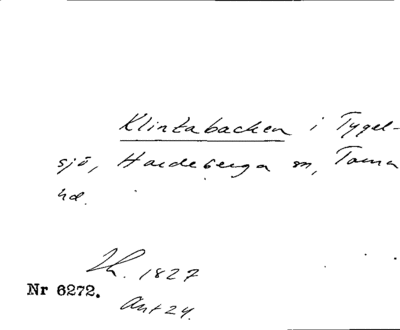 Klintabacken i Tygel-
sjö, Hardeberga sn, Torna
hd.
Th. 1827
Nr 6272.
Ant 24.